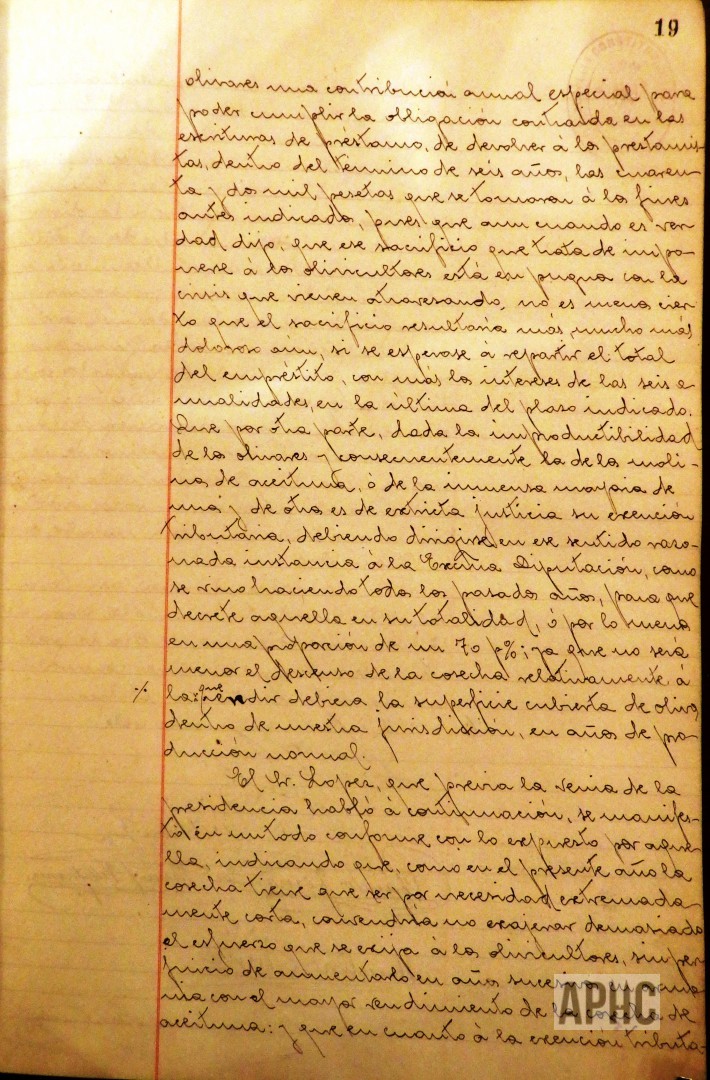 19
olivares una contribución anual especial para
poder cumplir la obligación contraida en las
escrituras de préstamo, de devolver á los prestamis-
tas, dentro del término de seis años, las cuaren-
ta y dos mil pesetas que se tomaron á los fines
antes indicados, pues que aun cuando es ver-
dad, dijo, que ese sacrificio que trata de impo-
nerse á los olivicultores está en pugna con la
crisis que vienen atravesando, no es menos cier-
to que el sacrificio resultaria más, mucho más
doloroso aún, si se esperase á repartir el total
del empréstito, con más los intereses de las seis a-
nualidades, en la última del plazo indicado.
Que por otra parte, dada la improductibilidad
de los olivares y consecuentemente la de los moli-
nos de aceituna, ó de la inmensa mayoria de
unos y de otros es de extricta justicia su exención
tributaria, debiendo dirigirse en ese sentido razo-
nada instancia á la Excma Diputación, como
se vino haciendo todos los pasados años, para que
decrete aquella en su totalidad, ó por lo menos
en una proporción de un 70 p%; ya que no será
menor el descenso de la cosecha relativamente á
la que rendir debiera la superficie cubierta de olivo,
dentro de nuestra jurisdicción, en años de pro-
ducción normal.
El Sr. Lopez, que previa la venia de la
presidencia habló á continuación, se manifes-
tó en un todo conforme con lo expuesto por aque-
lla, indicando que, como en el presente año la
cosecha tiene que ser por necesidad extremada-
mente corta, convendria no exajerar demasiado
el esfuerzo que se exija á los olivicultores, sin per-
juicio de aumentarlo en años sucesivos en armo-
nia con el mayor rendimiento de la cosecha de
aceituna: y que en cuanto á la exención tributa-
APHC